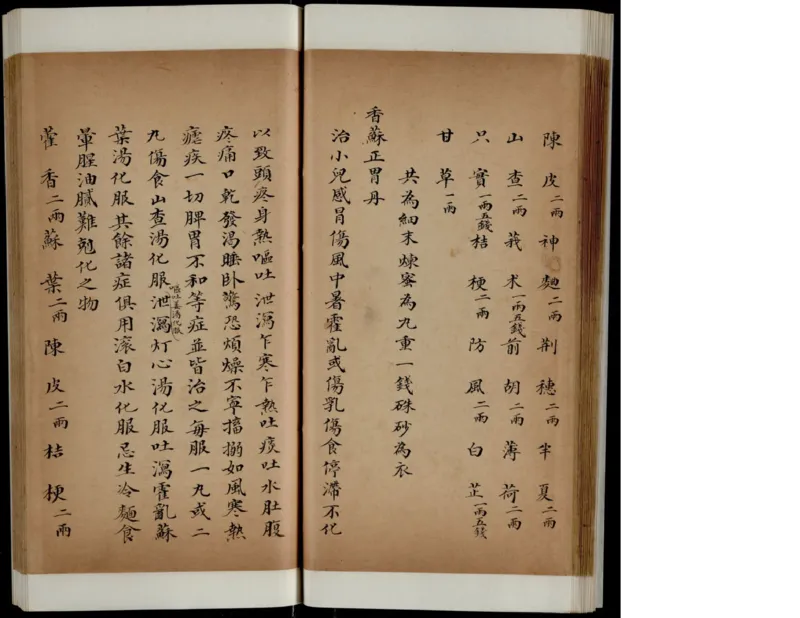 陳皮二兩神麯二兩荆穗二兩半夏二兩
山查二兩莪术一兩五錢前胡二兩薄荷二兩
只實一兩五錢桔梗二兩防風二兩白芷一兩五錢
甘草一兩
共為細末煉蜜為丸重一錢硃砂為衣
香蘇正胃丹
治小兒感冒傷風中暑霍亂或傷乳傷食停滯不化
以致頭疼身熱嘔吐泄瀉乍寒乍熱吐痰吐水肚腹
疼痛口乾發渴睡卧驚恐煩燥不寧搐搦如風寒熱
瘧疾一切脾胃不和等症並皆治之每服一丸或二
丸傷食山查湯化服泄瀉灯心湯化服吐瀉霍亂蘇
嘔吐姜湯化服
葉湯化服其餘諸症俱用滚白水化服忌生冷麵食
葷腥油膩難剋化之物
藿香二兩蘇葉二兩陳皮二兩桔梗二兩